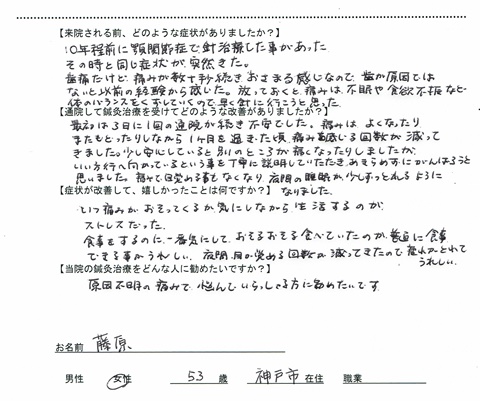 【来院される前、どのような症状がありましたか？】
10年程前に顎関節症で針治療した事があった
その時と同じ症状が突然きた。
歯痛だけど、痛みが数十秒続きおさまる感じなので、歯が原因では
ないと以前の経験から感じた。放っておくと痛みは不眠や食欲不振など
体のバランスをくずしていくので早く針に行こうと思った。
【通院して鍼灸治療を受けてどのような改善がありましたか？】
最初は3日に1回の通院が続き不安でした。痛みは、よくなったり
またもどったりしながら1ヶ月を過ぎた頃、痛みを感じる回数が減って
きました。少し安心していると別のところが痛くなったりしましたが、
いい方行へ向かっているという事を丁寧に説明していただき、あきらめずにがんばろうと
思いました。痛みで目覚める事もなくなり、夜間の睡眠が少しずつとれるように
なりました。
【症状が改善して、嬉しかったことは何ですか？】
いつ痛みがおそってくるか気にしながら生活するのが
ストレスだった。
食事をするのに一番気にして、おそるおそる食べていたのが、普通に食事
できる事がうれしい。夜間目が覚める回数が減ってきたので疲れがとれて
うれしい。
【当院の鍼灸治療をどんな人に勧めたいですか？】
原因不明の痛みで悩んでいらっしゃる方に勧めたいです
お名前 藤原
男性 女性 53 歳 神戸市 在住 職業